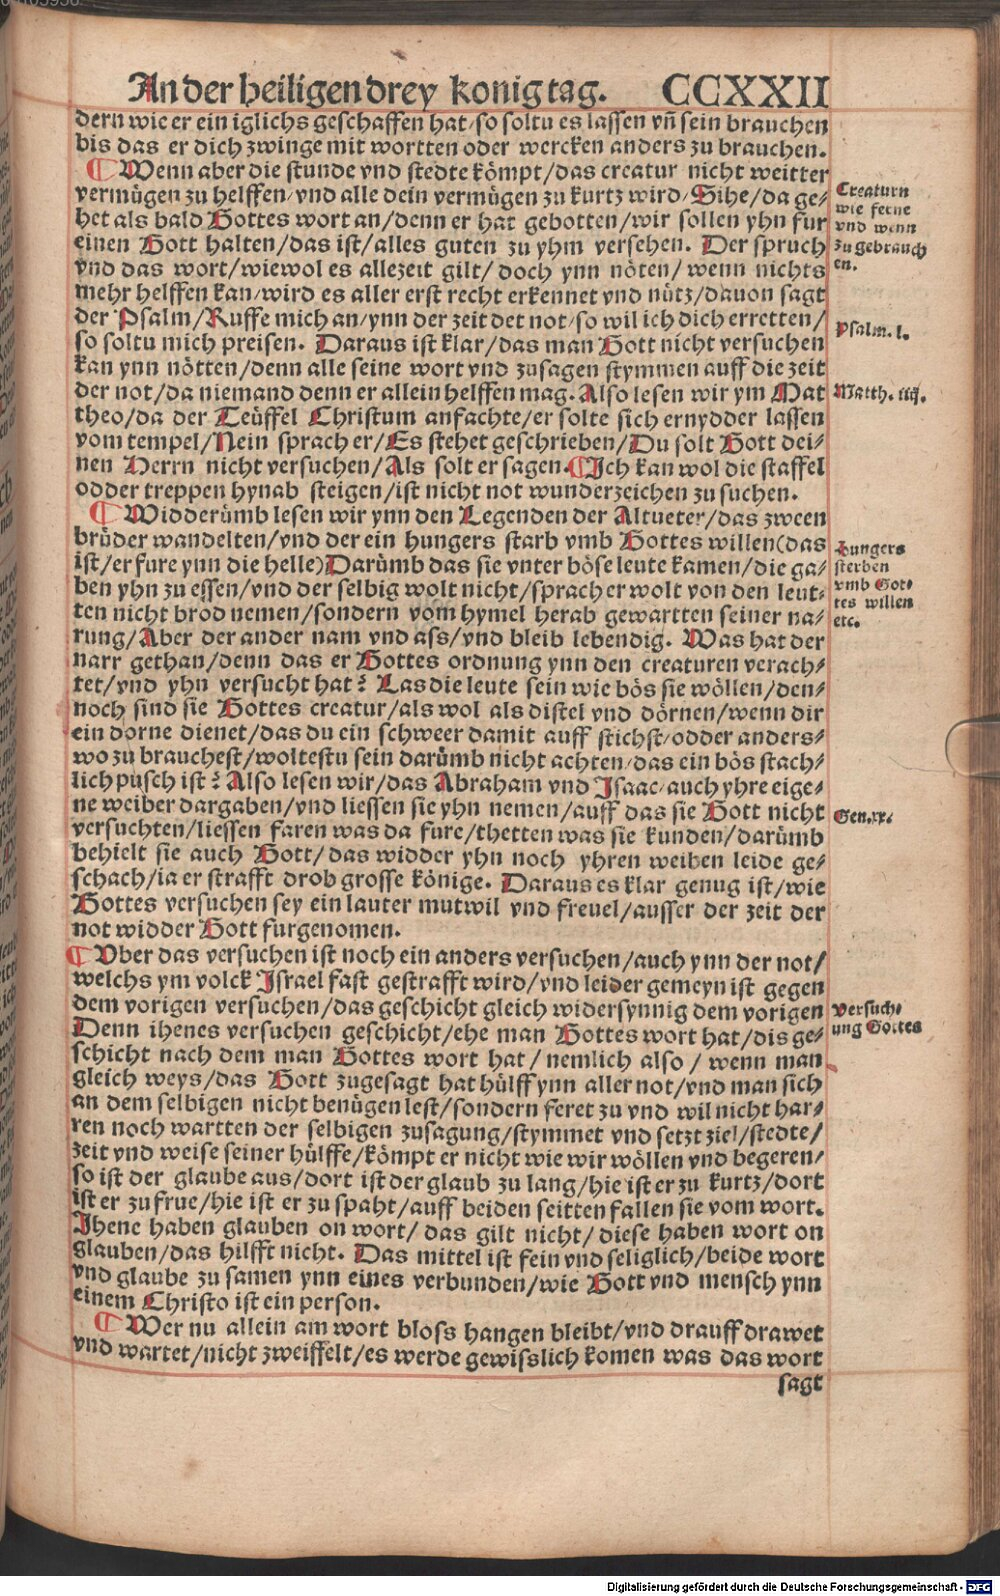 An der heiligen drey konig tag. CCXXII
dern wie er ein iglichs geschaffen hat/so soltu es lassen vñ sein brauchen
bis das er dich zwinge mit wortten oder wercken anders zu brauchen.
¶ Wenn aber die stunde vnd stedte kömpt/das creatur nicht weitter
vermügen zu helffen/vnd alle dein vermügen zu kurtz wird/Sihe/da ge-
het als bald Gottes wort an/denn er hat gebotten/wir sollen yhn fur
einen Gott halten/das ist/alles guten zu yhm versehen. Der spruch
vnd das wort/wiewol es allezeit gilt/doch ynn nöten/wenn nichts
mehr helffen kan/wird es aller erst recht erkennet vnd nütz/dauon sagt
der Psalm/Ruffe mich an/ynn der zeit det not/so wil ich dich erretten/
so soltu mich preisen. Daraus ist klar/das man Gott nicht versuchen
kan ynn nötten/denn alle seine wort vnd zusagen stymmen auff die zeit
der not/da niemand denn er allein helffen mag. Also lesen wir ym Mat
theo/da der Teüffel Christum anfachte/er solte sich ernydder lassen
vom tempel/Nein sprach er/Es stehet geschrieben/Du solt Gott dei-
nen Herrn nicht versuchen/Als solt er sagen. ¶ Ich kan wol die staffel
odder treppen hynab steigen/ist nicht not wunderzeichen zu suchen.
¶ Widderümb lesen wir ynn den Legenden der Altueter/das zween
brüder wandelten/vnd der ein hungers starb vmb Gottes willen(das
ist/er fure ynn die helle)Darümb das sie vnter böse leute kamen/die ga-
ben yhn zu essen/vnd der selbig wolt nicht/sprach er wolt von den leut-
ten nicht brod nemen/sondern vom hymel herab gewartten seiner na-
rung/Aber der ander nam vnd ass/vnd bleib lebendig. Was hat der
narr gethan/denn das er Gottes ordnung ynn den creaturen verach-
tet/vnd yhn versucht hat? Las die leute sein wie bös sie wöllen/den-
noch sind sie Gottes creatur/als wol als distel vnd dörnen/wenn dir
ein dorne dienet/das du ein schweer damit auff stichst/odder anders-
wo zu brauchest/woltestu sein darümb nicht achten/das ein bös stach-
lich pusch ist? Also lesen wir/das Abraham vnd Isaac/auch yhre eige-
ne weiber dargaben/vnd liessen sie yhn nemen/auff das sie Gott nicht
versuchten/liessen faren was da fure/thetten was sie kunden/darümb
behielt sie auch Gott/das widder yhn noch yhren weiben leide ge-
schach/ia er strafft drob grosse könige. Daraus es klar genug ist/wie
Gottes versuchen sey ein lauter mutwil vnd freuel/ausser der zeit der
not widder Gott furgenomen.
¶ Vber das versuchen ist noch ein anders versuchen/auch ynn der not/
welchs ym volck Israel fast gestrafft wird/vnd leider gemeyn ist gegen
dem vorigen versuchen/das geschicht gleich widersynnig dem vorigen
Denn ihenes versuchen geschicht/ehe man Gottes wort hat/dis ge-
schicht nach dem man Gottes wort hat/nemlich also/wenn man
gleich weys/das Gott zugesagt hat hülff ynn aller not/vnd man sich
an dem selbigen nicht benügen lest/sondern feret zu vnd wil nicht har-
ren noch wartten der selbigen zusagung/stymmet vnd setzt ziel/stedte/
zeit vnd weise seiner hülffe/kömpt er nicht wie wir wöllen vnd begeren/
so ist der glaube aus/dort ist der glaub zu lang/hie ist er zu kurtz/dort
ist er zu frue/hie ist er zu spaht/auff beiden seitten fallen sie vom wort.
Ihene haben glauben on wort/das gilt nicht/diese haben wort on
glauben/das hilfft nicht. Das mittel ist fein vnd seliglich/beide wort
vnd glaube zu samen ynn eines verbunden/wie Gott vnd mensch ynn
einem Christo ist ein person.
¶ Wer nu allein am wort bloss hangen bleibt/vnd drauff drawet
vnd wartet/nicht zweiffelt/es werde gewisslich komen was das wort
sagt
Creaturn
wie ferne
vnd wenn
zu gebrauch
en.
Psalm. l.
Matth. iiij.
Hungers
sterben
vmb Got-
tes willen
etc.
Gen. xx.
Versuch-
ung Gottes
Digitalisierung gefördert durch die Deutsche Forschungsgemeinschaft - DFG